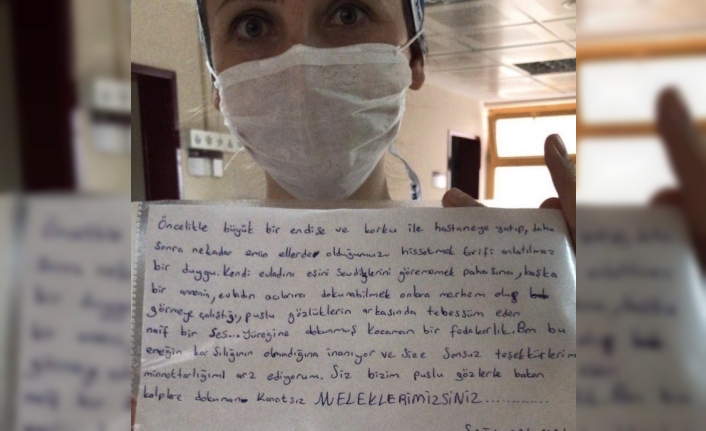 Öncelikle büyük bir endişe ve korku ile hastaneye yatıp, daha
sonra nekadar emin ellerde olduğumuzu hissetmek tarifi anlatılmaz
bir duygu. Kendi evladını eşini sevdiklerini görememek pahasına, başka
bir annenin, evladın acılarına dokunabilmek onlara merhem olup
görmeye çalıştığı, puslu gözlüklerin arkasında tebessüm eden
naif bir ses... yüreğine dokunmuş kocaman bir fedekarlık. Ben bu
emeğin karşılığının olmadığına inanıyor ve size sonsuz teşekkürlerim
minnettarlığımı arz ediyorum. Siz bizim puslu gözlerle bakan
kalplere dokunan kanatsız MELEKLERİMİZSİNİZ............